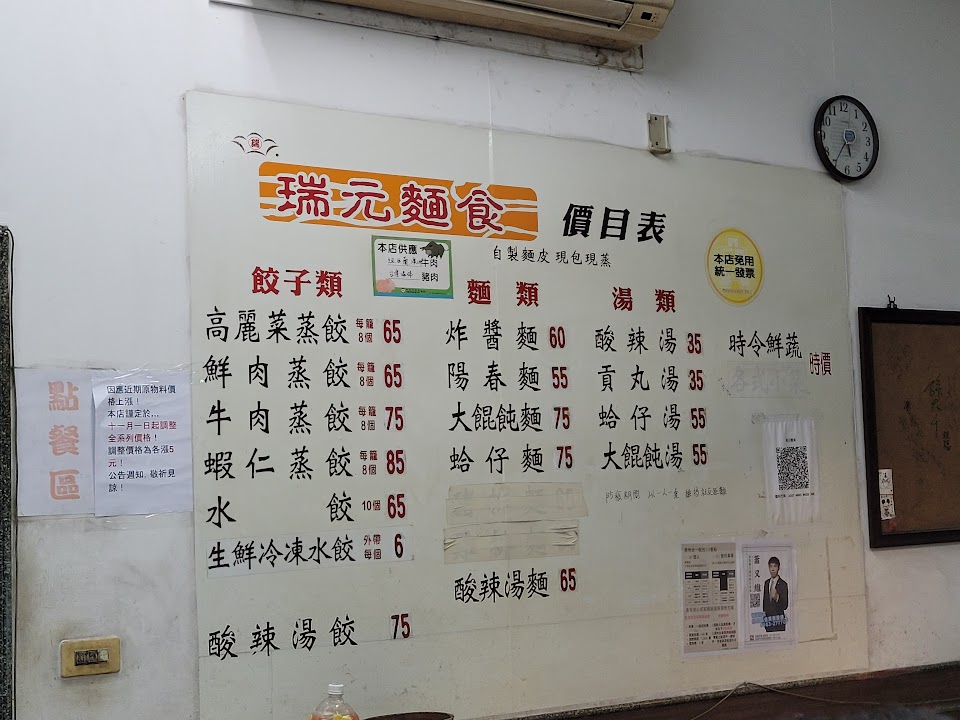 瑞元麵食
價目表
自製麵皮現包現蒸
本店供應
牛肉
豬肉
本店免用
統一發票
餃子類
高麗菜蒸餃 每籠8個 65
鮮肉蒸餃 每籠8個 65
牛肉蒸餃 每籠8個 75
蝦仁蒸餃 每籠8個 85
水餃 10個 65
生鮮冷凍水餃 外帶每個 6
酸辣湯餃 75
麵類
炸醬麵 60
陽春麵 55
大餛飩麵 75
蛤仔麵 75
酸辣湯麵 65
湯類
酸辣湯 35
貢丸湯 35
蛤仔湯 55
大餛飩湯 55
時令鮮蔬 時價
點餐區
因應近期原物料價
格上漲！
本店謹定於...
十一月一日起調整
全系列價格！
調整價格為各漲5
元！
公告週知，敬祈見
諒！